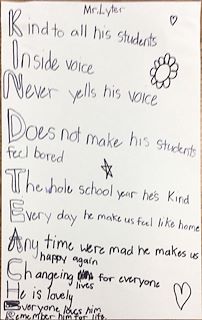 Mr. Lyter
Kind to all his students
Inside voice
Never yells his voice
Does not make his students
feel bored
The whole school year he's Kind
Every day he make us feel like home
Any time were mad he makes us
happy again
Changeing lives for everyone
He is lovely
Everyone loves him
Remember him for life.